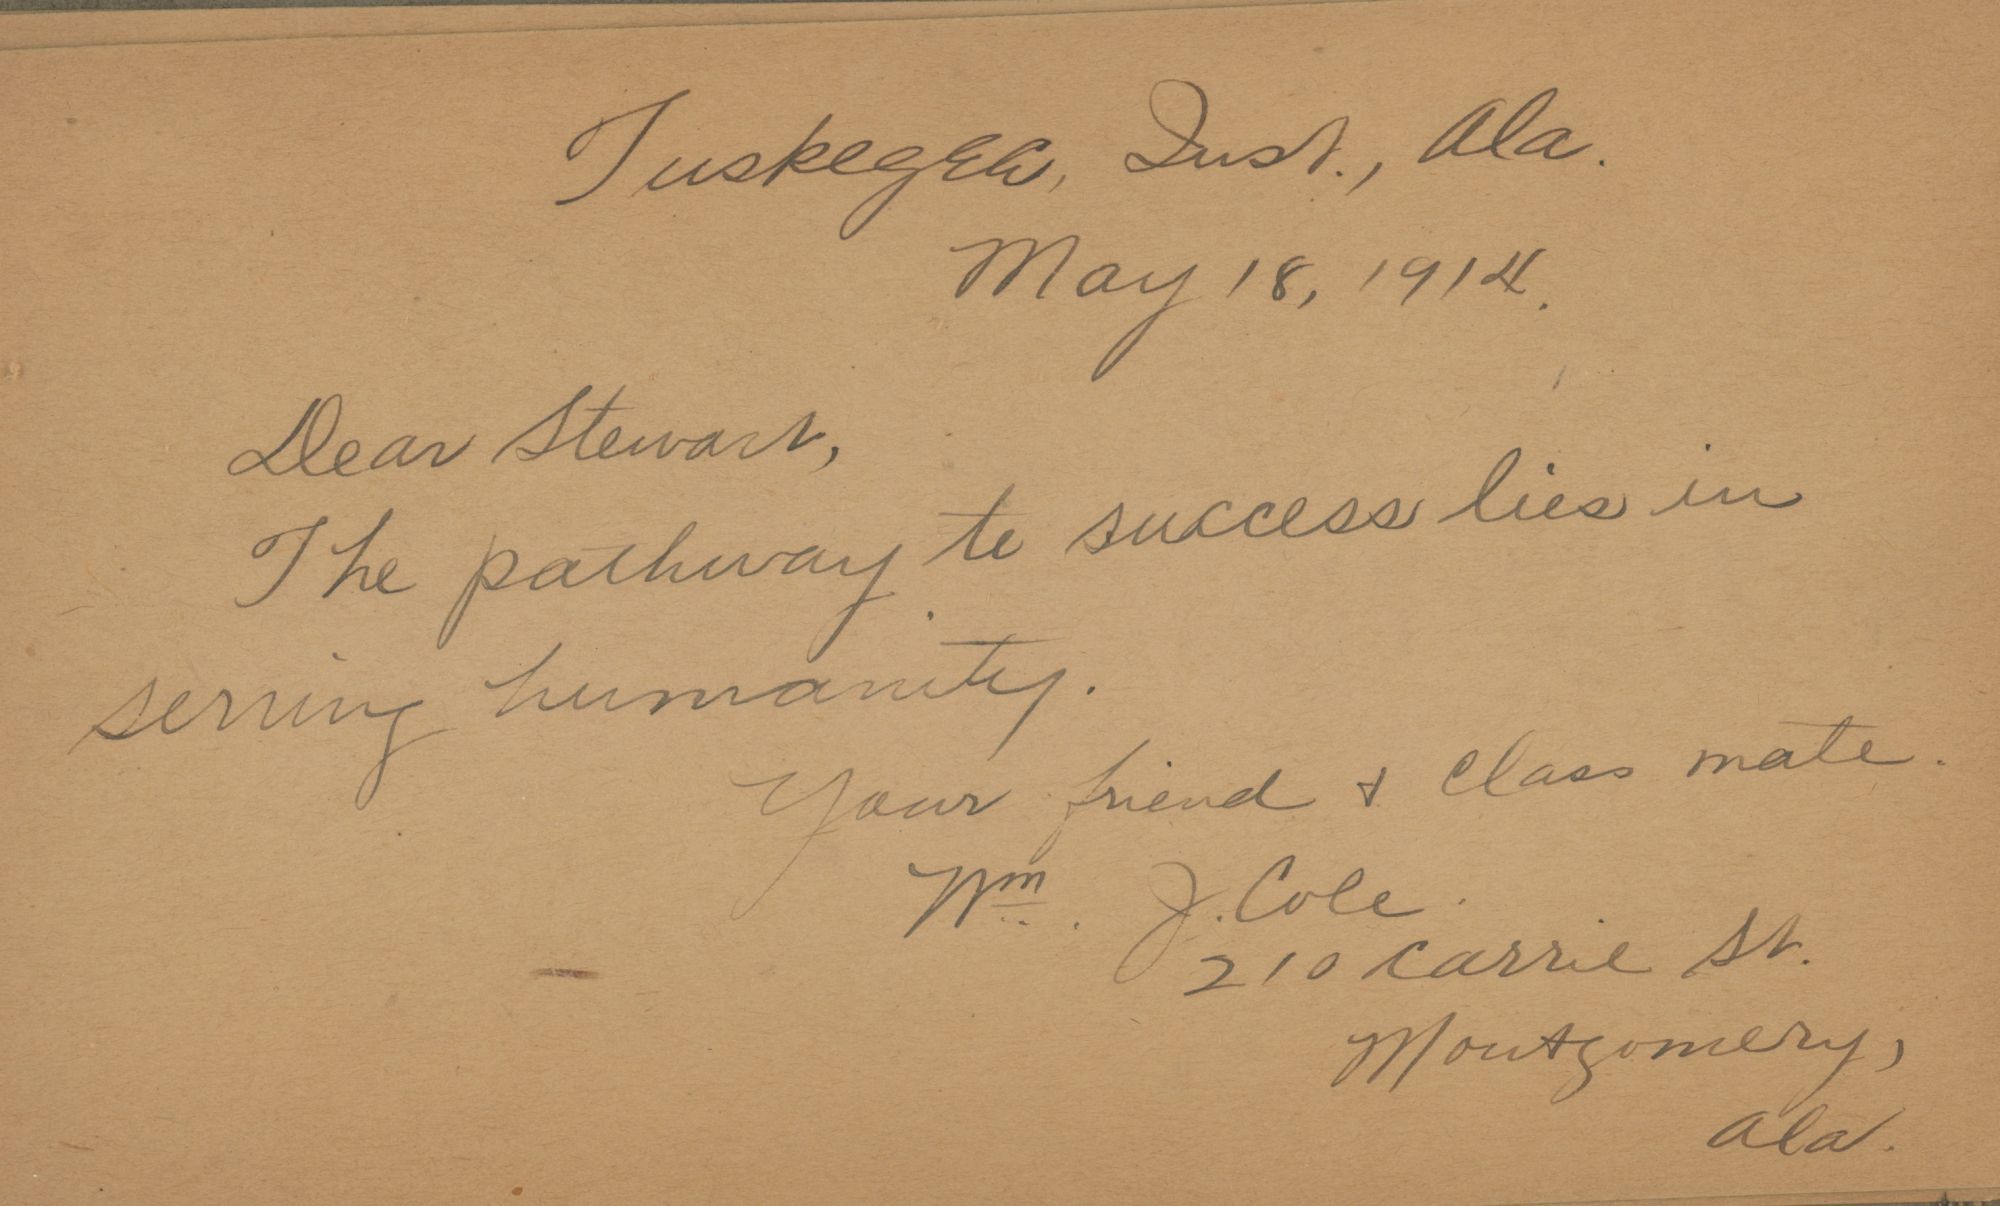 Tuskegee, Inst., Ala.
May 18, 1914.
Dear Stewart,
The pathway to success lies in
serving humanity.
Your friend & Class mate.
Wm. J. Cole.
210 Carrie St.
Montgomery,
Ala.